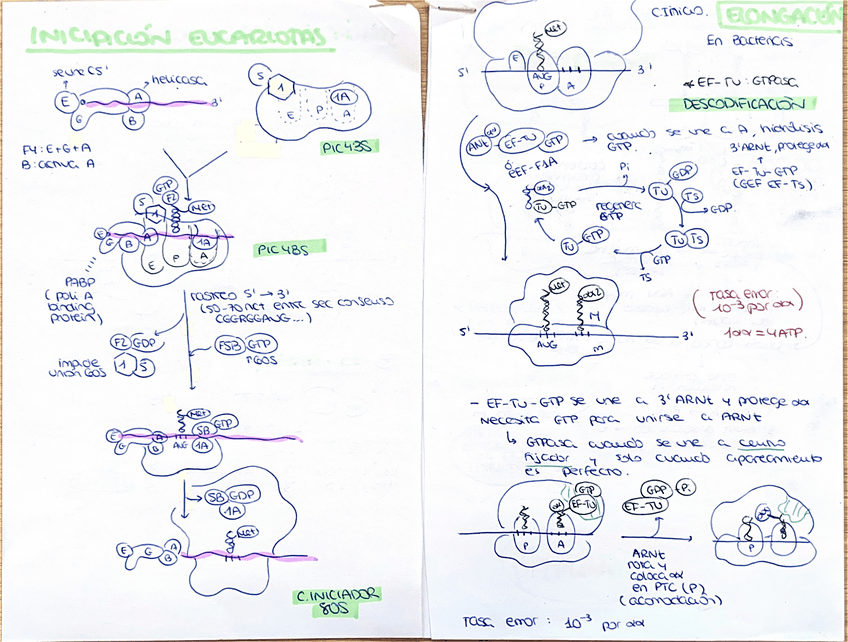 INICIACIÓN EUCARIOTAS
se une C5'
helicasa
E
A
G
B
3'
F4: E+G+A
B: activa A
5
1
1A
E
P
A
PIC 43S
GTP
F2
Met
5
1
E
G
B
A
1A
E
P
A
PIC 48S
PABP
(poli A
binding
protein)
rastreo 5' → 3'
(50-70 nct entre sec consenso
F2 GDP
impide
unión 60S
1 5
F5B GTP
↑ 60S
Met
5B
GTP
E
G
A
B
AUG
1A
5B GDP
1A
Met
E
G
A
B
C. INICIADOR
80S
C. Inicio.
ELONGACIÓN
En Bacterias
Met
E
5'
3'
AUG
P
A
*EF-TU: GTPasa
DESCODIFICACIÓN
ARNt
EF-TU
GTP
→ cuando se une a A, hidrólisis
GTP.
3'ARNt, protege aa
↑
EF-TU-GTP
(GEF EF-Ts)
eEF-F1A
aa2
TU-GTP
Pi
regenera
GTP
TU
GDP
TS
GDP
TU TS
GTP
TS
TU
GTP
Met
aa2
M
5'
3'
AUG
m
(Tasa error:
10⁻³ por aa)
1aa = 4ATP.
- EF-TU-GTP se une a 3' ARNt y protege aa
necesita GTP para unirse a ARNt
↳ GTPasa cuando se une a centro
fijador y solo cuando apareamiento
es perfecto.
GTP
EF-TU
P
A
GDP
Pi
EF-TU
ARNt
rota y
coloca aa
en PTC (P)
(acomodación)
P
Tasa error: 10⁻³ por aa